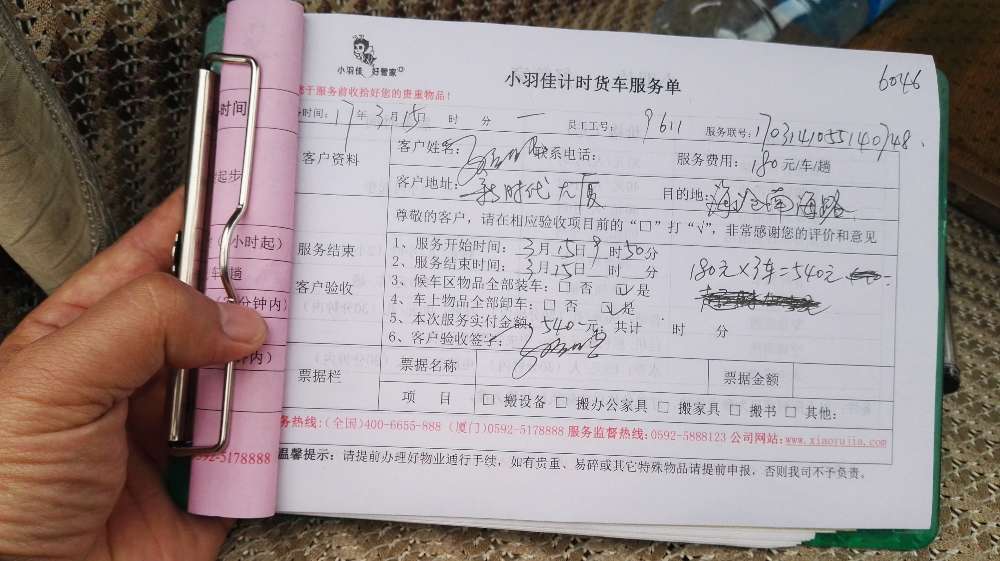 小羽佳 好管家
小羽佳计时货车服务单
6046
于服务前收拾好您的贵重物品!
务时间: 17年3月15日 时 分 — 员工工号: 9611 服务联号: 1703141055140748
时间
起步
小时起)
车/趟
分钟内)
钟内)
592-5178888
客户资料
客户姓名: 联系电话: 服务费用: 180元/车/趟
客户地址: 新时代大厦 目的地: 海沧南海路
服务结束
客户验收
尊敬的客户,请在相应验收项目前的“□”打“√”,非常感谢您的评价和意见
1、服务开始时间: 3月15日9时50分
2、服务结束时间: 3月15日 时 分
3、候车区物品全部装车: □ 否 ☑ 是
4、车上物品全部卸车: □ 否 ☑ 是
5、本次服务实付金额: 540元; 共计 时 分
6、客户验收签字:
180元×3车=540元
票据栏
票据名称 票据金额
项 目 □ 搬设备 □ 搬办公家具 □ 搬家具 □ 搬书 □ 其他:
务热线:(全国)400-6655-888 (厦门)0592-5178888 服务监督热线:0592-5888123 公司网站:www.xiaoyujia.com
温馨提示: 请提前办理好物业通行手续, 如有贵重、易碎或其它特殊物品请提前申报, 否则我司不予负责。